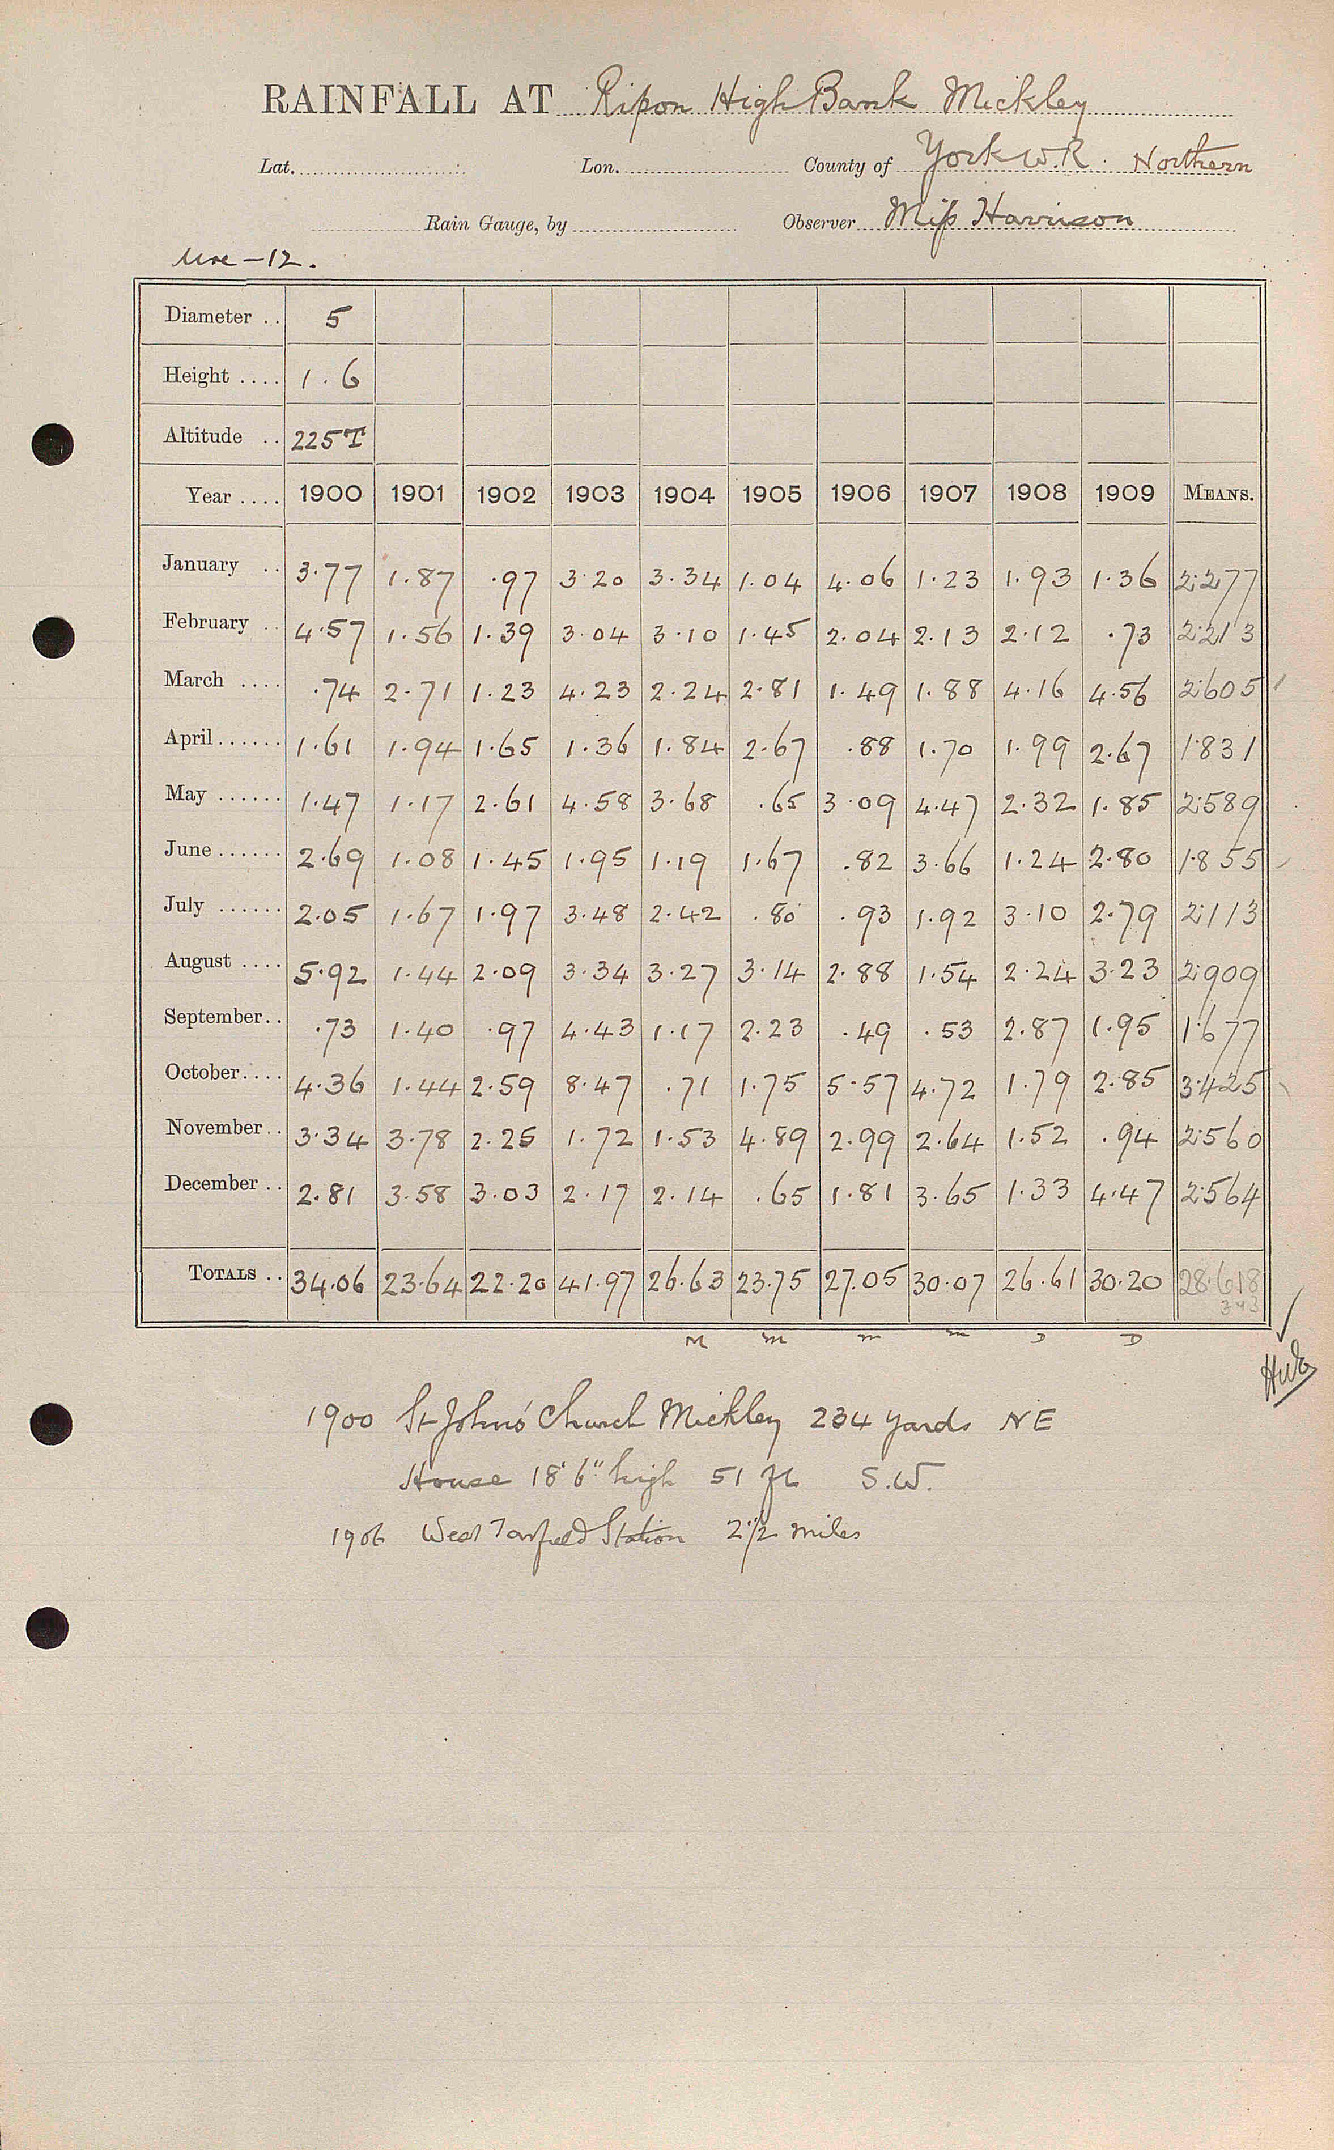 RAINFALL AT Ripon High Bank Mickley
Lat. Lon. County of York W.R. Northern
Rain Gauge, by Observer Miss Harrison
Ure - 12.
Diameter .. 5
Height .... 1.6
Altitude .. 225T
Year .... 1900 1901 1902 1903 1904 1905 1906 1907 1908 1909 MEANS.
January .. 3.77 1.87 .97 3.20 3.34 1.04 4.06 1.23 1.93 1.36 2.277
February .. 4.57 1.56 1.39 3.04 3.10 1.45 2.04 2.13 2.12 .73 2.213
March .... .74 2.71 1.23 4.23 2.24 2.81 1.49 1.88 4.16 4.56 2.605
April ...... 1.61 1.94 1.65 1.36 1.84 2.67 .88 1.70 1.99 2.67 1.831
May ...... 1.47 1.17 2.61 4.58 3.68 .65 3.09 4.47 2.32 1.85 2.589
June ...... 2.69 1.08 1.45 1.95 1.19 1.67 .82 3.66 1.24 2.80 1.855
July ...... 2.05 1.67 1.97 3.48 2.42 .80 .93 1.92 3.10 2.79 2.113
August .... 5.92 1.44 2.09 3.34 3.27 3.14 2.88 1.54 2.24 3.23 2.909
September .. .73 1.40 .97 4.43 1.17 2.23 .49 .53 2.87 1.95 1.677
October .... 4.36 1.44 2.59 8.47 .71 1.75 5.57 4.72 1.79 2.85 3.425
November .. 3.34 3.78 2.25 1.72 1.53 4.89 2.99 2.64 1.52 .94 2.560
December .. 2.81 3.58 3.03 2.17 2.14 .65 1.81 3.65 1.33 4.47 2.564
TOTALS .. 34.06 23.64 22.20 41.97 26.63 23.75 27.05 30.07 26.61 30.20 28.618
M m m m D D
1900 St John's Church Mickley 234 yards NE
House 18' 6" high 51 ft S.W.
1906 West Tanfield Station 2 1/2 miles